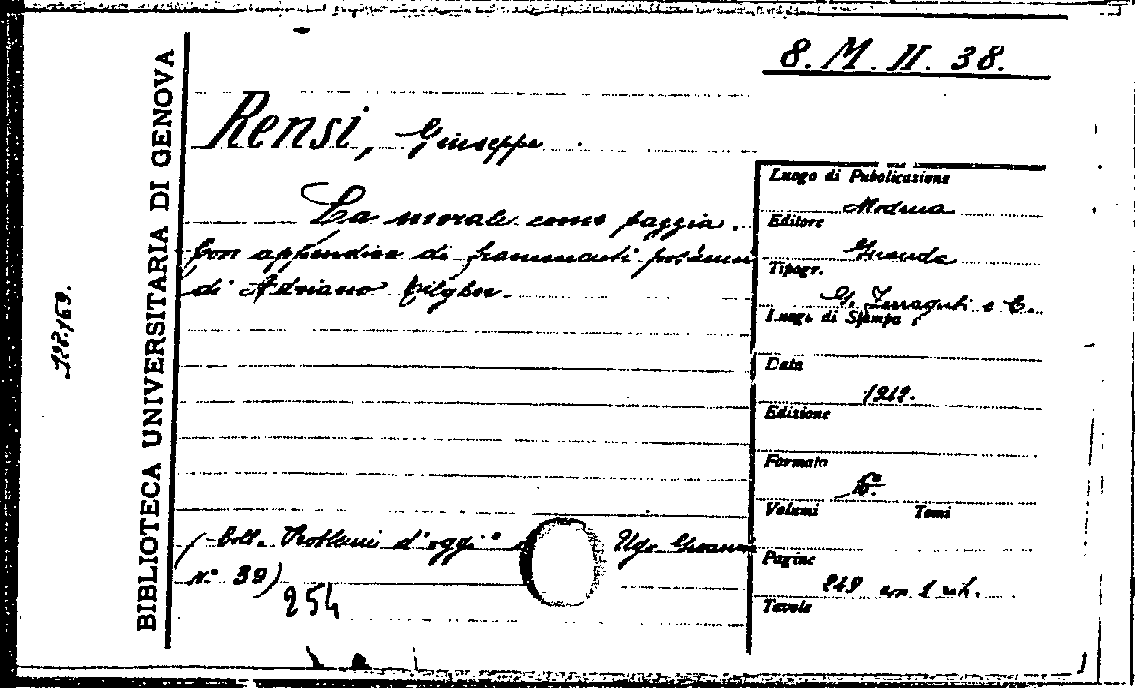 8. M. II. 38.
BIBLIOTECA UNIVERSITARIA DI GENOVA
Rensi, Giuseppe
La morale come pazzia.
Con appendice di frammenti
di Adriano Tilgher.
(Coll. Problemi d'oggi Ugo
N.º 39)
254
Luogo di Pubblicazione
Modena
Editore
Guanda
Tipogr.
G. Ferraguti e C.
Luogo di Stampa
Data
Edizione
Formato
Volumi Tomi
Pagine
249 con 1 rit.
Tavole